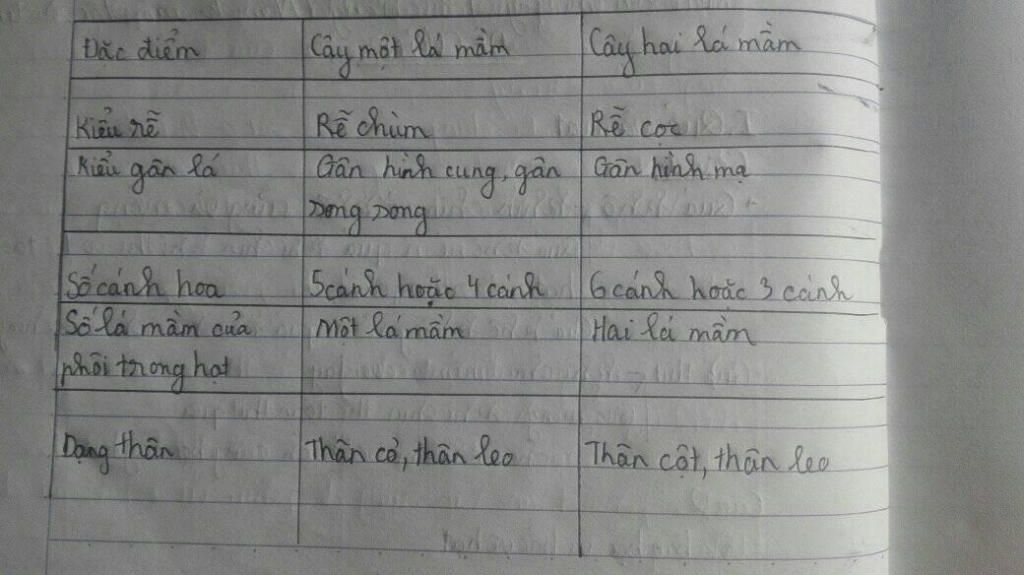 Đặc điểm Cây một lá mầm Cây hai lá mầm
Kiểu rễ Rễ chùm Rễ cọc
Kiểu gân lá Gân hình cung, gân Gân hình mạ
song song
Số cánh hoa 5 cánh hoặc 4 cánh 6 cánh hoặc 3 cánh
Số lá mầm của Một lá mầm Hai lá mầm
phôi trong hạt
Dạng thân Thân cỏ, thân leo Thân cột, thân leo